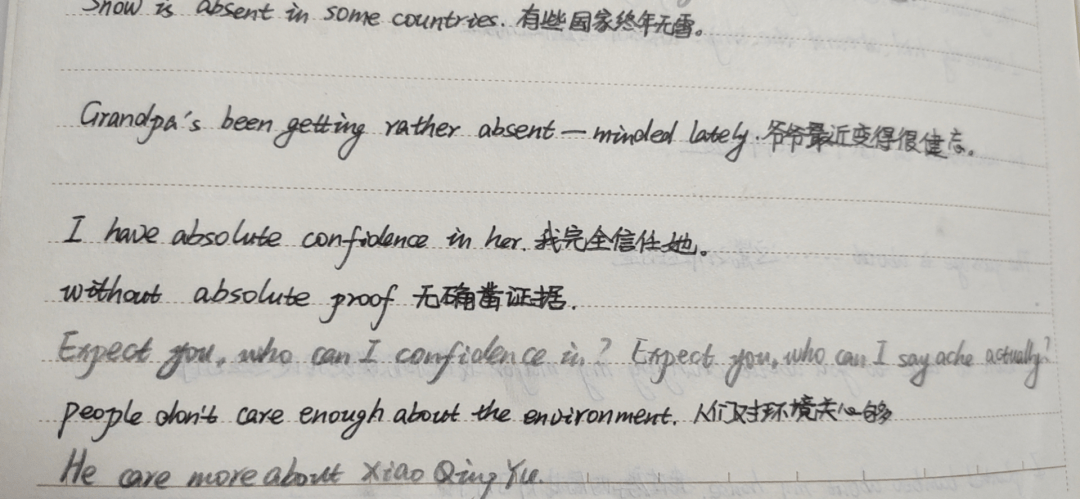 Snow is absent in some countries. 有些国家终年无雪。
Grandpa's been getting rather absent—minded lately. 爷爷最近变得很健忘。
I have absolute confidence in her. 我完全信任她。
without absolute proof 无确凿证据.
Expect you, who can I confidence in? Expect you, who can I say ache actually?
people don't care enough about the environment. 人们对环境关心够
He care more about Xiao Qing Yu.